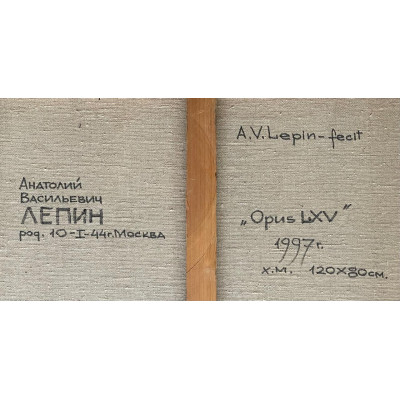 Анатолий
Васильевич
ЛЕПИН
род. 10-I-44г. Москва
A.V. Lepin-fecit
„Opus LXV"
1997 г.
х.м. 120X80см.